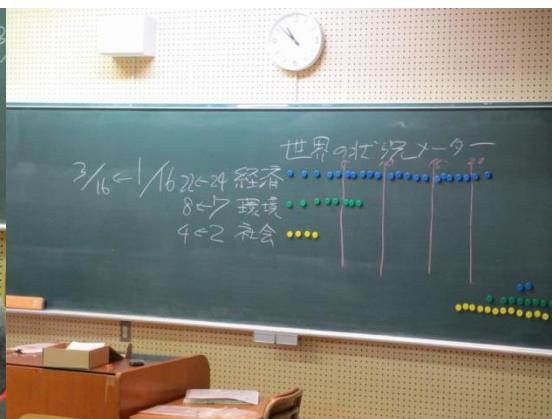 世界の状況メーター
5 10 15 20
3/16←1/16 22←24 経済
8←7 環境
4←2 社会